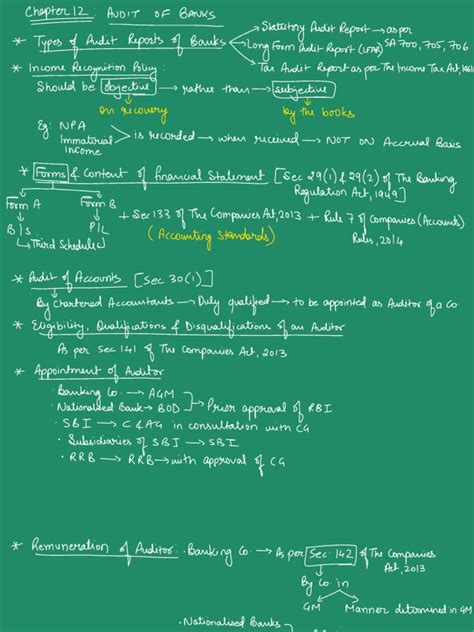 Chapter 12: AUDIT OF BANKS
* Types of Audit Reports of Banks
Statutory Audit Report → as per SA 700, 705, 706
Long Form Audit Report (LFAR)
Tax Audit Report as per The Income Tax Act, 1961
* Income Recognition Policy:
Should be objective → rather than → subjective
on recovery
by the books
Eg: NPA
Immaterial Income
is recorded → when received → NOT ON Accrual Basis
* Forms & Content of Financial Statement [Sec 29(1) & 29(2) of The Banking Regulation Act, 1949]
Form A
Form B
B/S
P/L
Third Schedule
+ Sec 133 of The Companies Act, 2013 + Rule 7 of Companies (Accounts) Rules, 2014
(Accounting Standards)
* Audit of Accounts [Sec 30(1)]
By Chartered Accountants → Duly qualified → to be appointed as Auditor of a Co.
* Eligibility, Qualifications & Disqualifications of an Auditor
As per Sec 141 of The Companies Act, 2013
* Appointment of Auditor
· Banking Co. → AGM
· Nationalised Bank → BOD
Prior approval of RBI
· SBI → C & AG in consultation with CG
· Subsidiaries of SBI → SBI
· RRB → RRB → with approval of CG
* Remuneration of Auditor: · Banking Co. → As per Sec. 142 of The Companies Act, 2013
By Co in
GM
Manner determined in GM
· Nationalised Banks